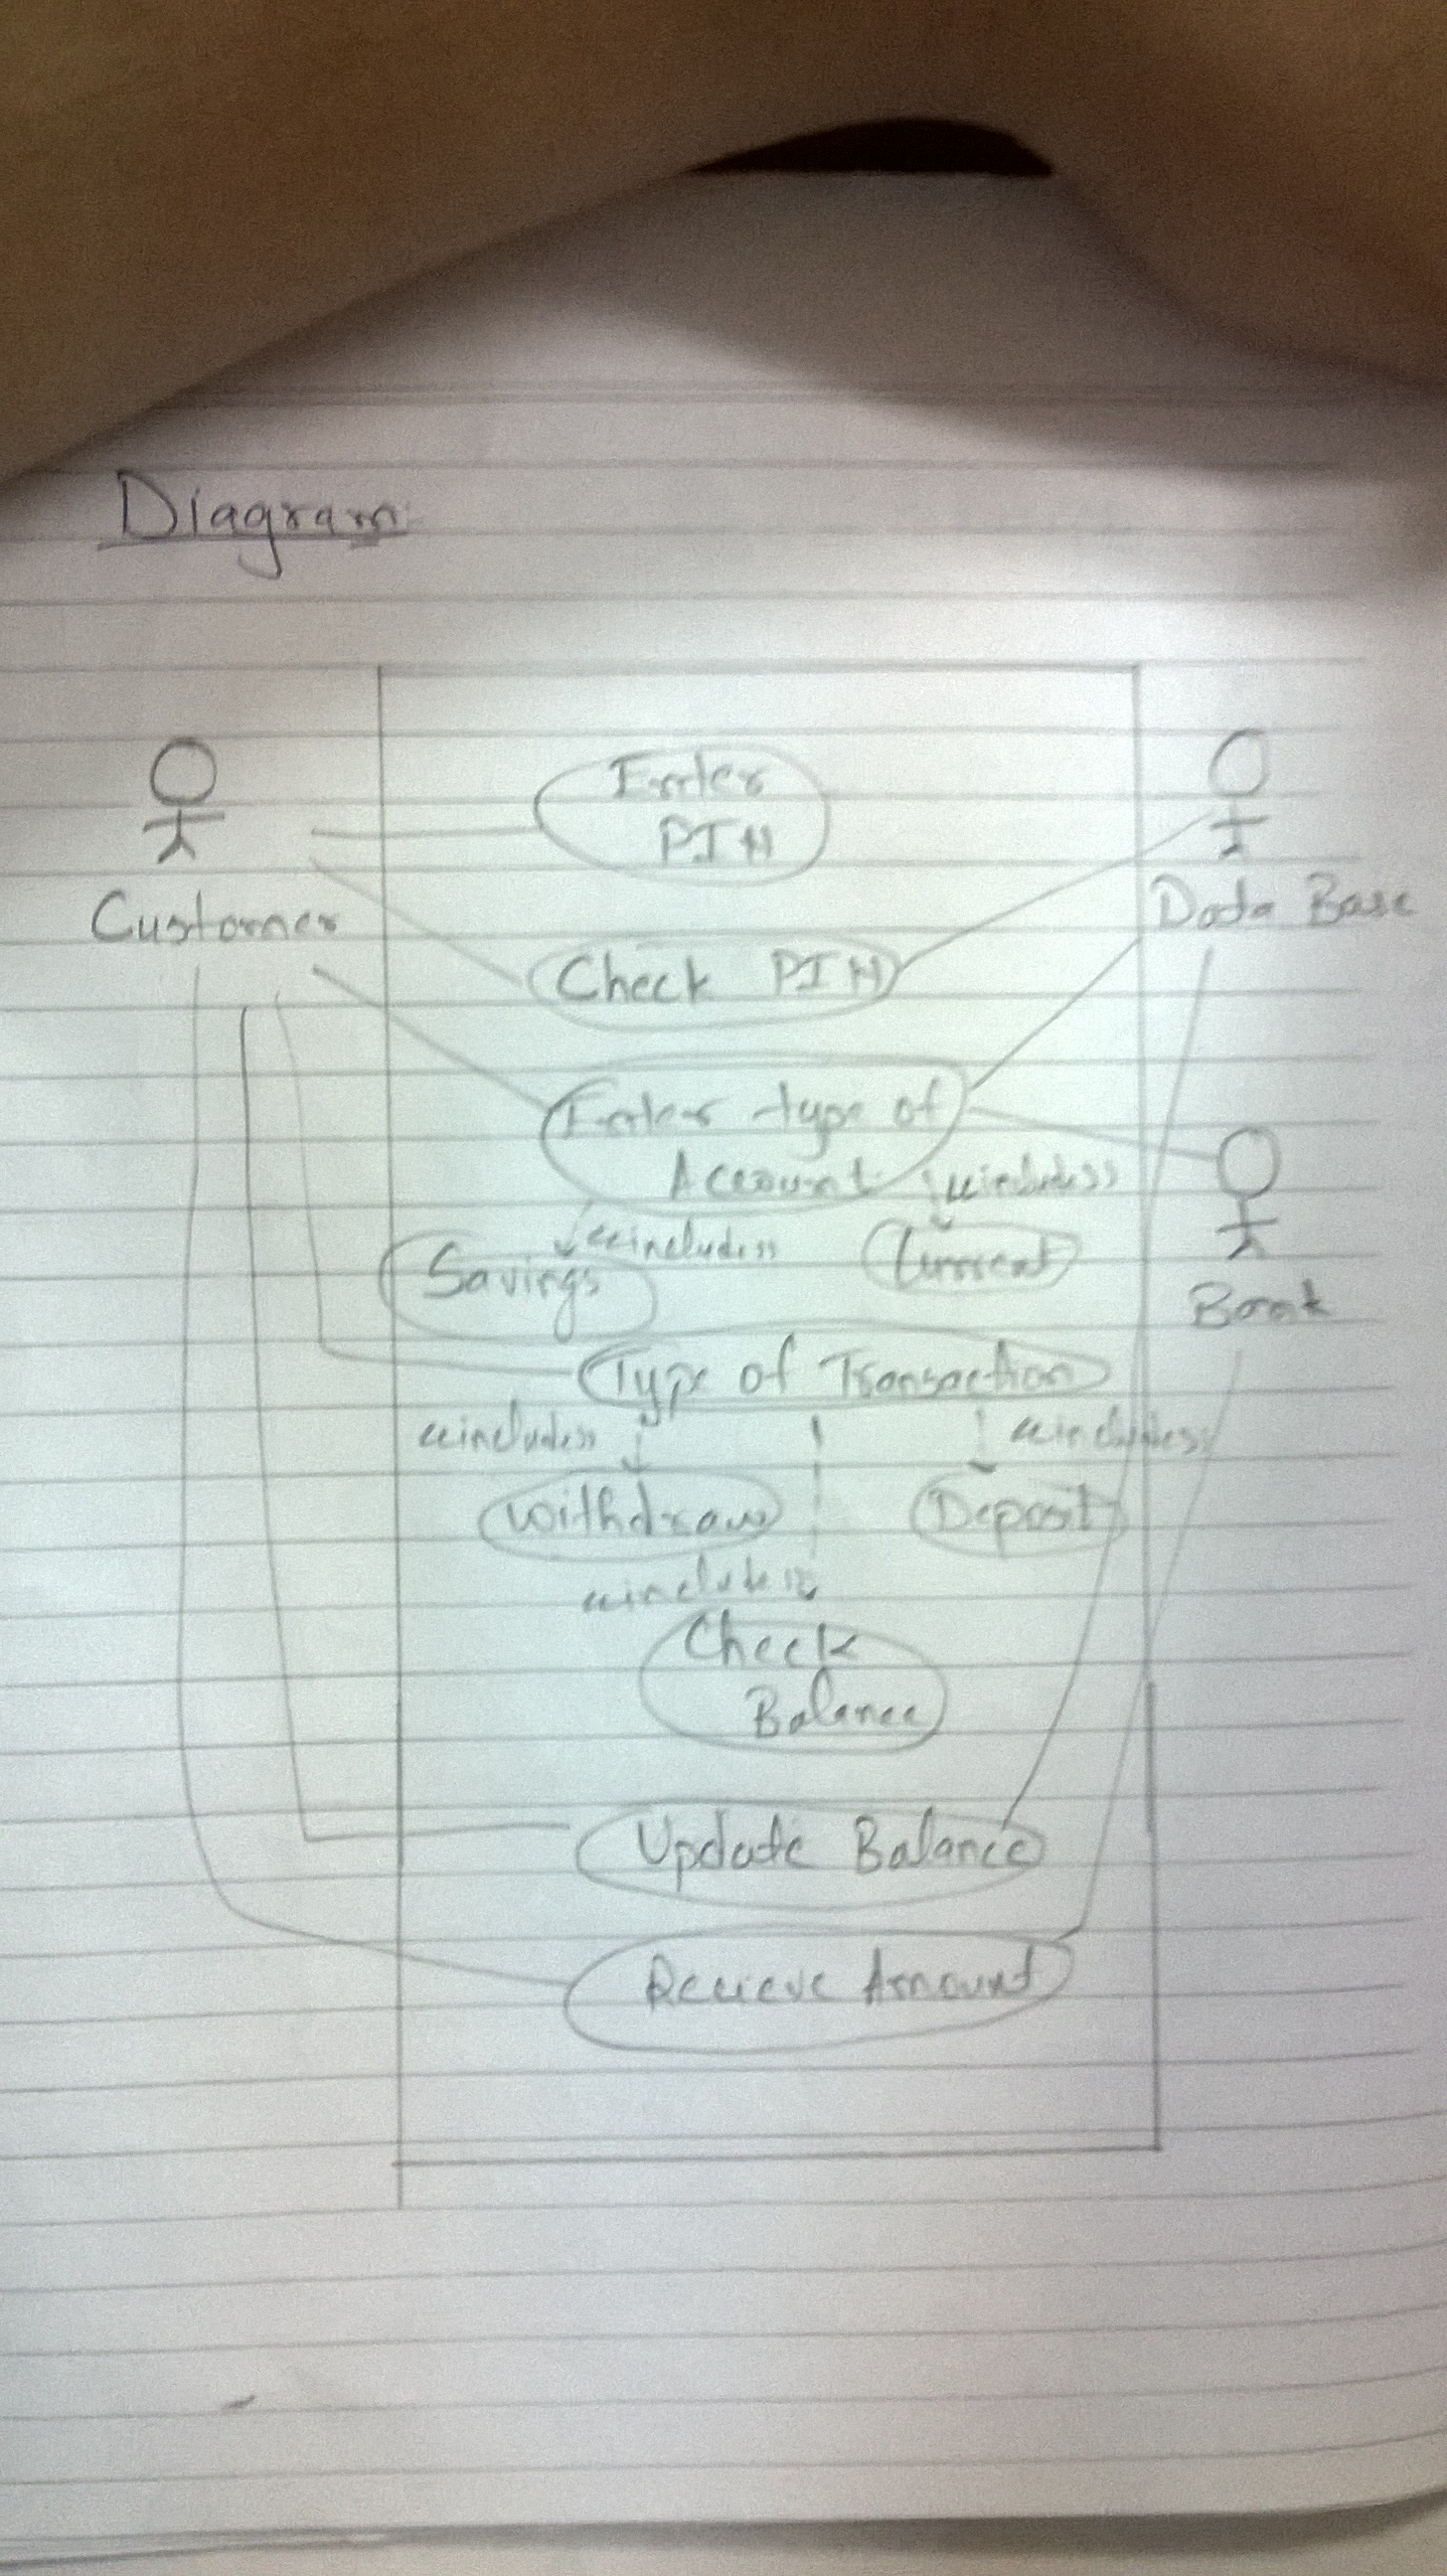 Diagram
Enter
PIN
Customer
Data Base
Check PIN
Enter type of
Account
<<includes>>
<<includes>>
Savings
Current
Bank
Type of Transaction
<<includes>>
<<includes>>
Withdraw
Deposit
<<includes>>
Check
Balance
Update Balance
Recieve Amount